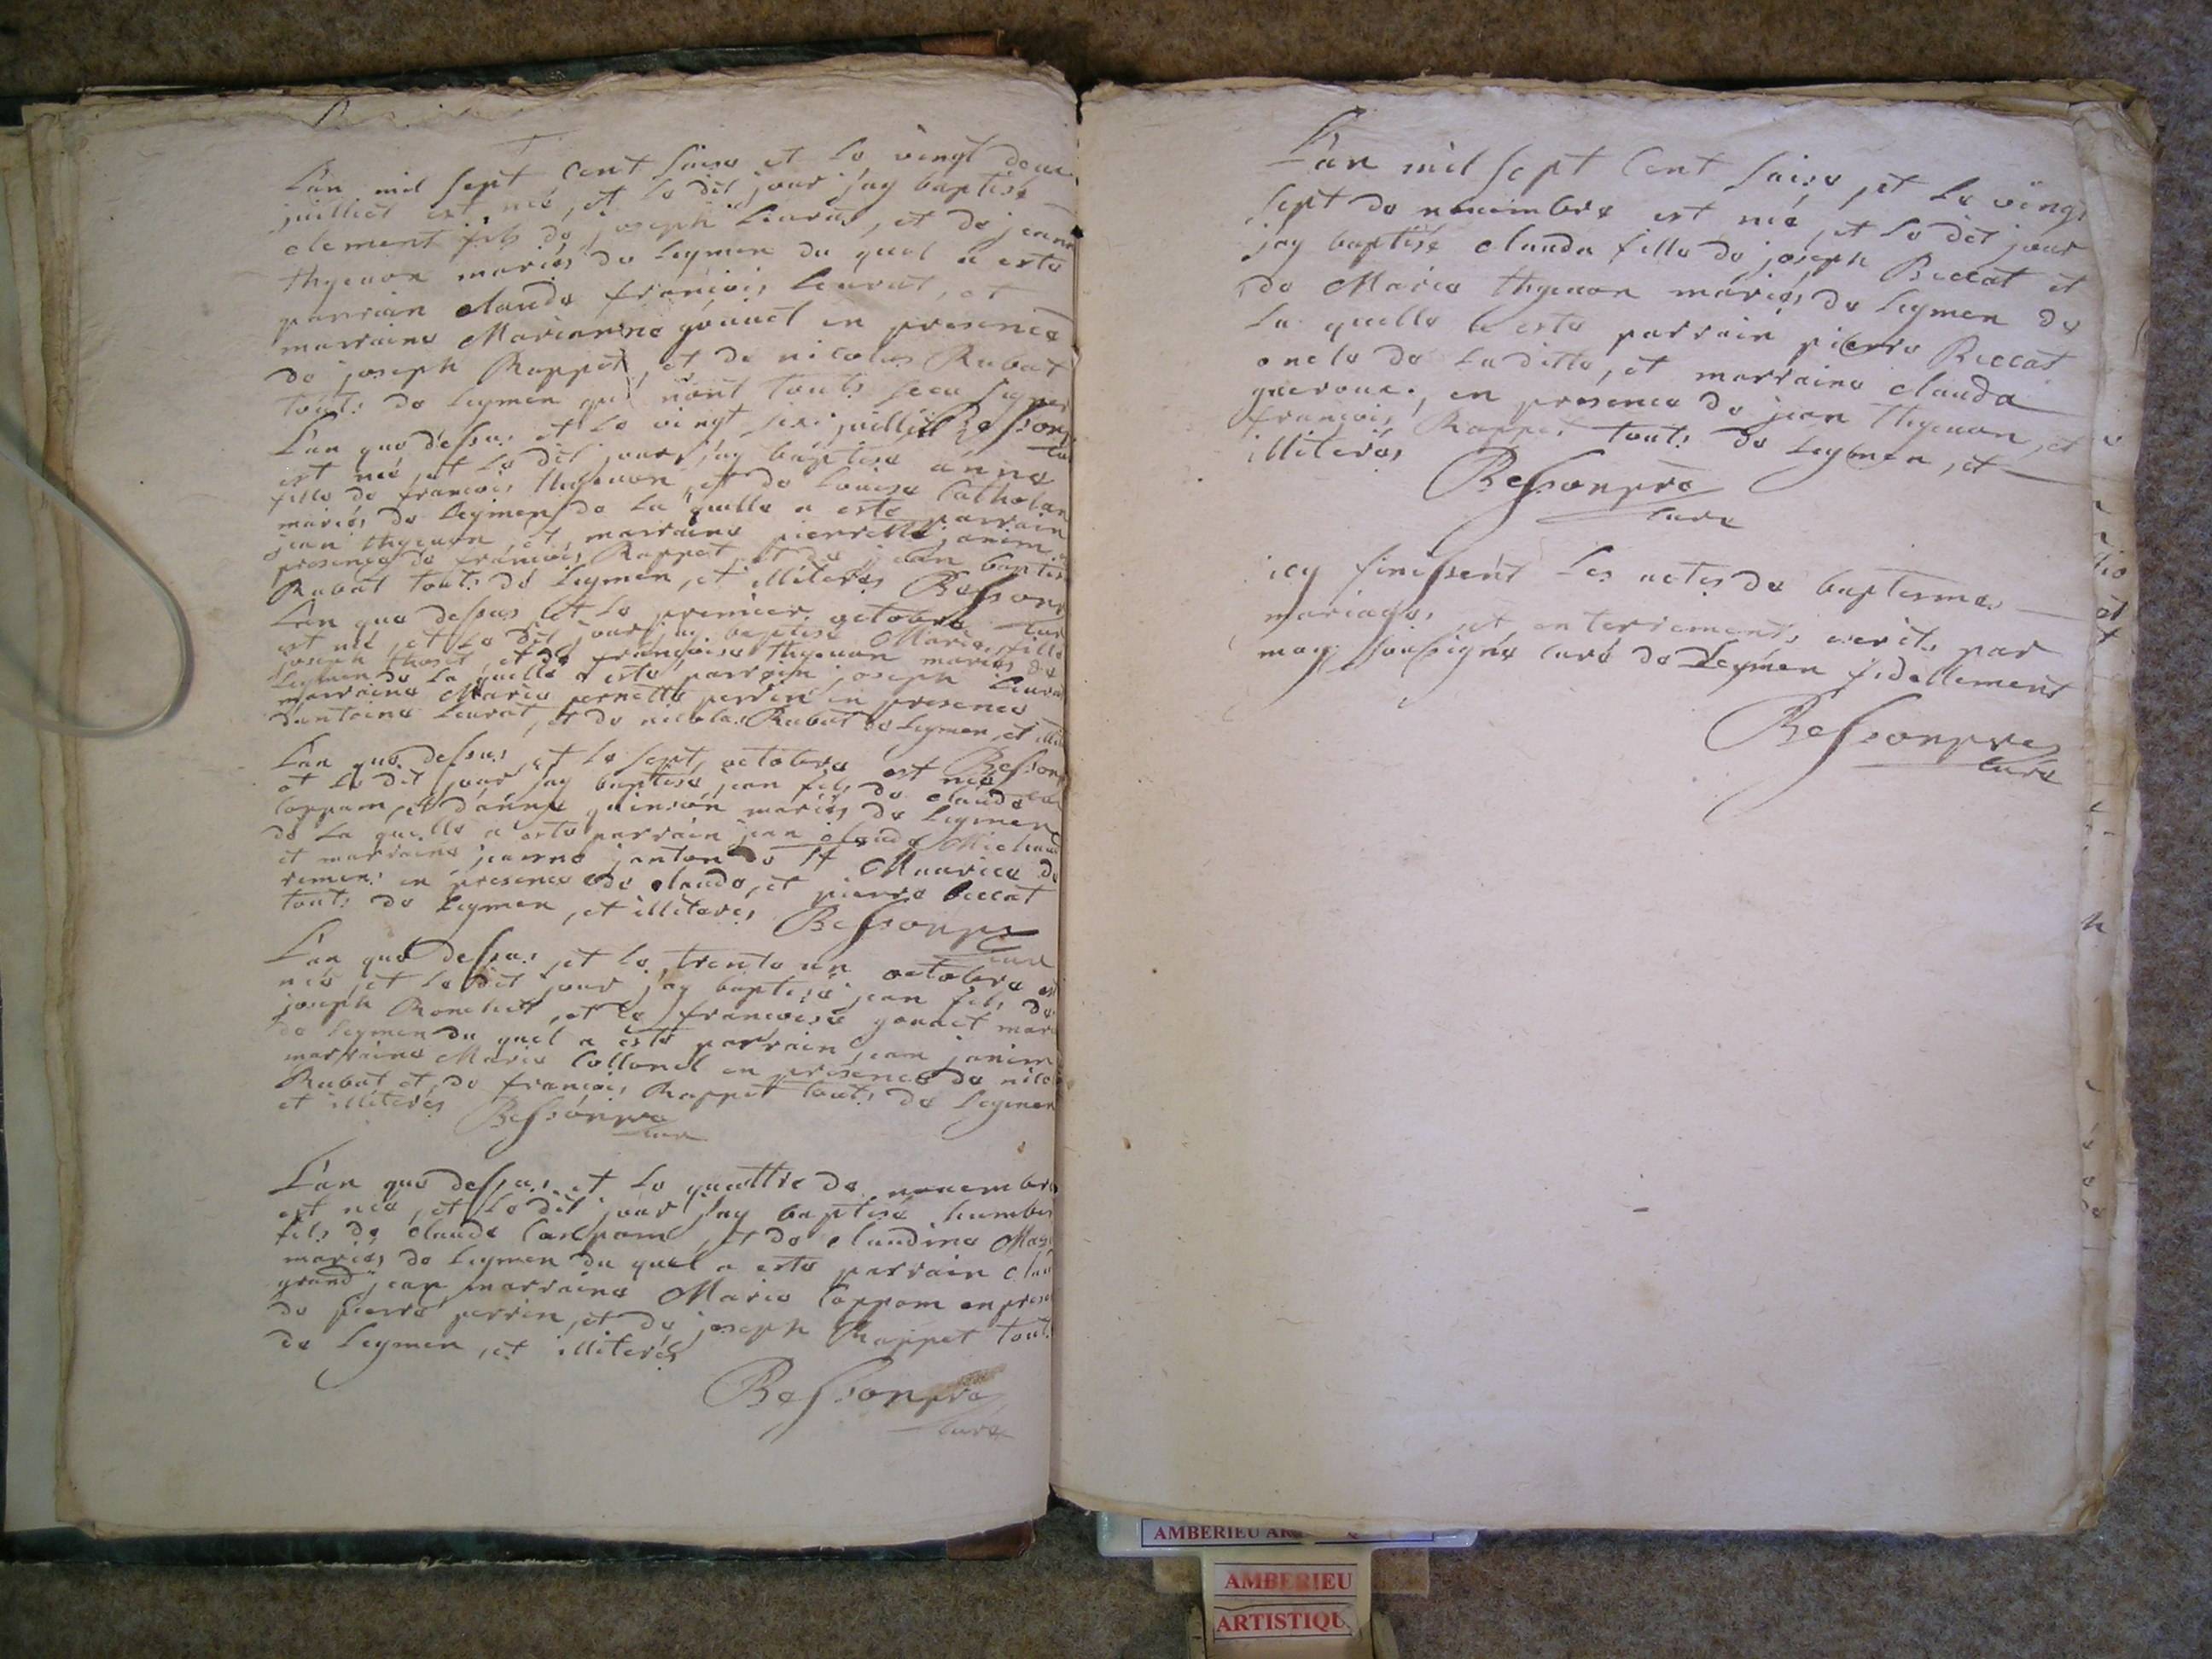 L'an mil sept cent saise et le vingt deux
juilliet est née, et le dit jour j'ay baptisé
clement fils de joseph Leurat, et de jeanne
thyeuon mariés de Leymen du quel a esté
parrain claude françois Leurat, et
marraine Marianne gounet en presence
de joseph Rappet, et de nicolas Rubat
touts de Leymen qui n'ont touts sceu signer
L'an que dessus et le vingt sixi juilliet Besson
est née, et le dit jour j'ay baptisé anne
fille de francois thyeuon, et de Louise Catholan
mariés de Leymen de la quelle a esté parrain
jean thyeuon et marraine pierrette janim
presence de francois Rappet, et de jean baptis
Rubat touts de Leymen, et illiterés Besson
L'an que dessus et le premier octobre
est née, et le dit jour j'ay baptisé Marie fille
joseph thoset, et de françoise thyeuon mariés de
Leymen de la quelle a esté parrain joseph Leurat
marraine Marie pernette perrin en presence
d'antoine Leurat, et de nicolas Rubat de Leymen, et illi
L'an que dessus, et le sept octobre est née Besson
et le dit jour j'ay baptisé jean fils de claude
Coppam, et d'anne quinson mariés de Leymen
de la quelle a esté parrain jean claude Michaud
et marraine jeanne janton de St Maurice de
remens en presence de claude, et pierre Beccat
touts de Leymen, et illiterés Besson pre
curé
L'an que dessus, et le trente un octobre est
née, et le dit jour j'ay baptisé jean fils de
joseph Ronchet, et de francoise gounet mari
de Leymen du quel a esté parrain jean janim
marraine Marie Collomel en presence de nico
Rubat et de francois Rappet touts de Leymen
et illiterés Besson pre
curé
L'an que dessus, et le quattre de nouembre
est née, et le dit jour j'ay baptisé humber
fils de claude Coppam, et de claudine Mas
mariés de Leymen du quel a esté parrain clau
grand jean marraine Marie Coppam en prese
de pierre perrin, et de joseph Rappet touts
de Leymen, et illiterés
Besson pre
curé
L'an mil sept cent saise, et le vingt
sept de nouembre est née, et le dit jour
j'ay baptisé clauda fille de joseph Beccat et
de Marie thyeuon mariés de Leymen de
la quelle a esté parrain pierre Beccat
oncle de la ditte, et marraine clauda
gueroux, en presence de jean thyeuon, et
francois Rappet touts de Leymen, et
illiterés
Besson pre
curé
icy finissent les actes de baptesmes
mariages, et enterrements escrits par
moy soussigné curé de Leymen fidellement
Besson pre
curé
AMBERIEU
AMBERIEU
ARTISTIQU